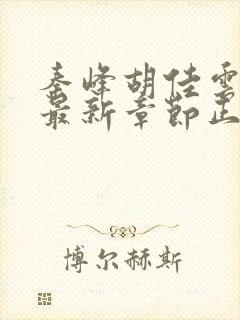 秦峰胡佳雲
最新章節正
博尔赫斯